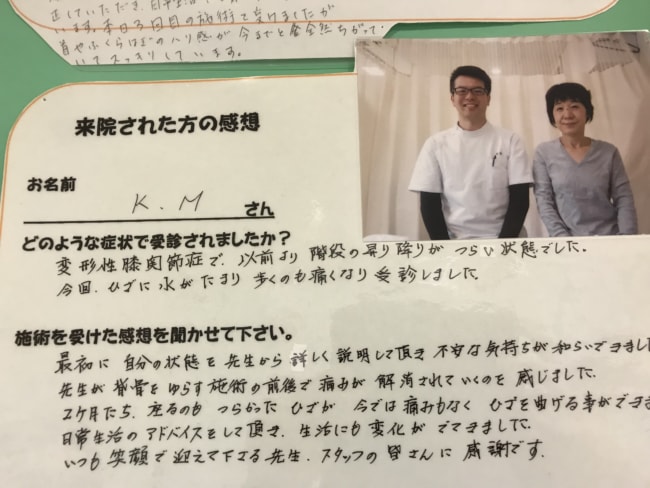 います。本日3回目の施術を受けましたが
首やふくらはぎのハリ感が今までと全然ちがって
スッキリしています。
来院された方の感想
お名前
K.M さん
どのような症状で受診されましたか?
変形性膝関節症で、以前より 階段の昇り降りが つらい状態でした。
今回、ひざに水がたまり 歩くのも痛くなり 受診しました。
施術を受けた感想を聞かせて下さい。
最初に 自分の状態を 先生から 詳しく説明して頂き 不安な気持ちが 和らいできまし
先生が 背骨をゆらす施術の前後で 痛みが 解消されていくのを 感じました。
2ケ月たち、座るのも つらかった ひざが 今では痛みもなく ひざを曲げる事ができ
日常生活の アドバイスをして頂き、生活にも変化が でてきました。
いつも 笑顔で 迎えて下さる先生、スタッフの皆さんに 感謝です。